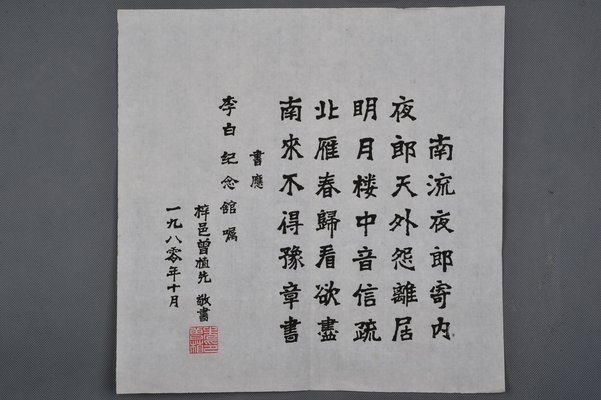 南流夜郎寄内
夜郎天外怨離居
明月楼中音信疏
北雁春歸看欲盡
南來不得豫章書
書應
李白纪念館嘱
梓邑曾植先 敬書
一九八零年十月